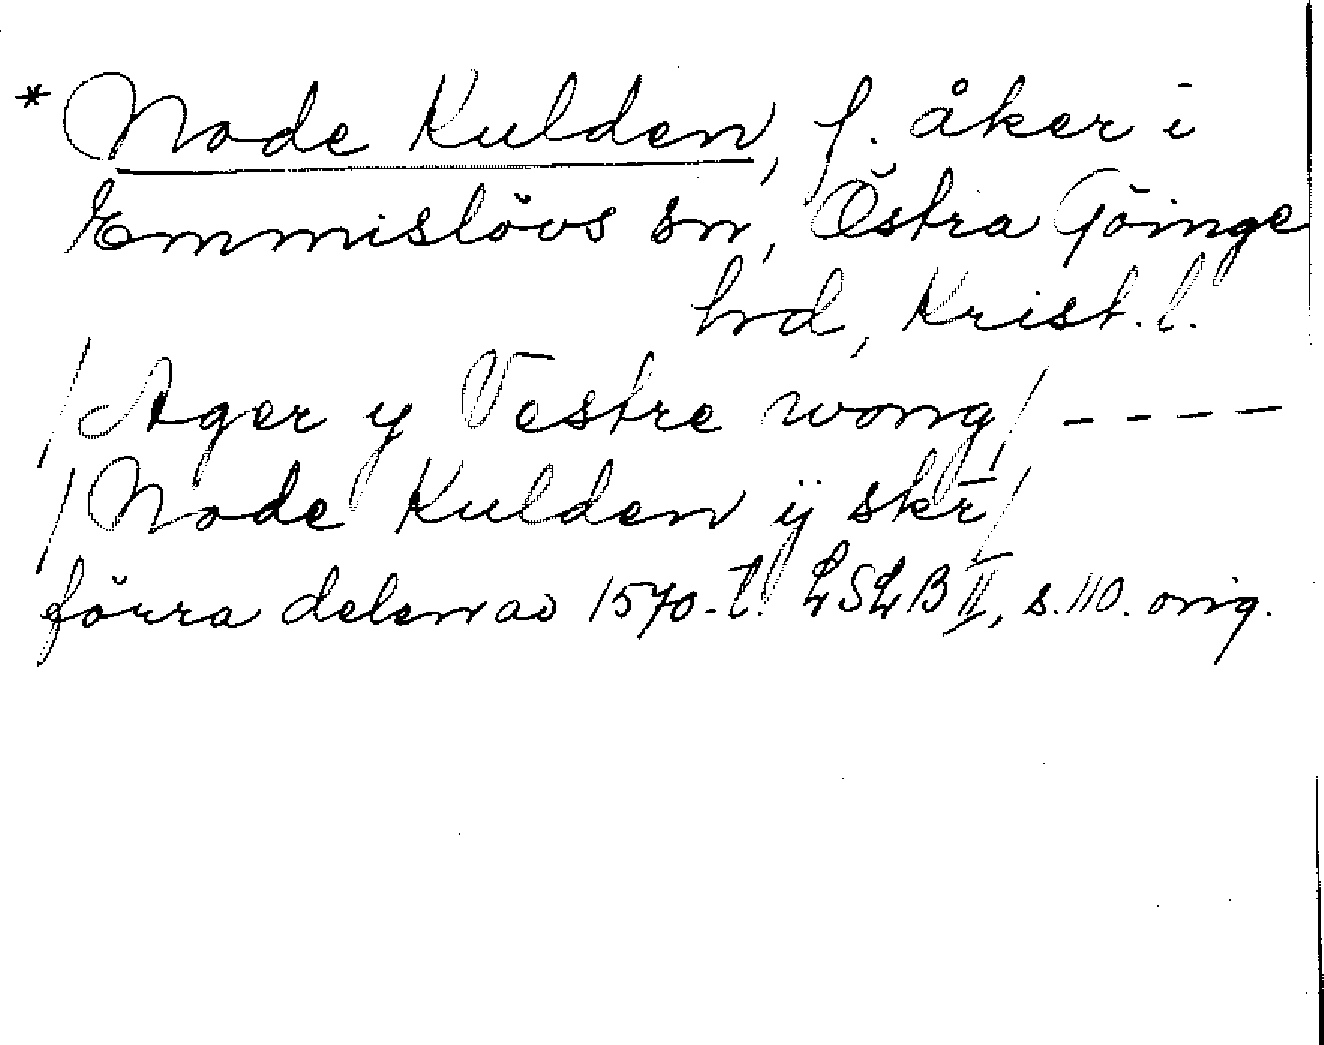 * Node Kulden, f. åker i
Emmislövs sn, Östra Göinge
hrd, Krist. l.
/Ager y Vestre wong/ - - - -
/Node Kulden ÿ skr̄/
förra delen av 1570-t. LSLB II, s. 110. orig.